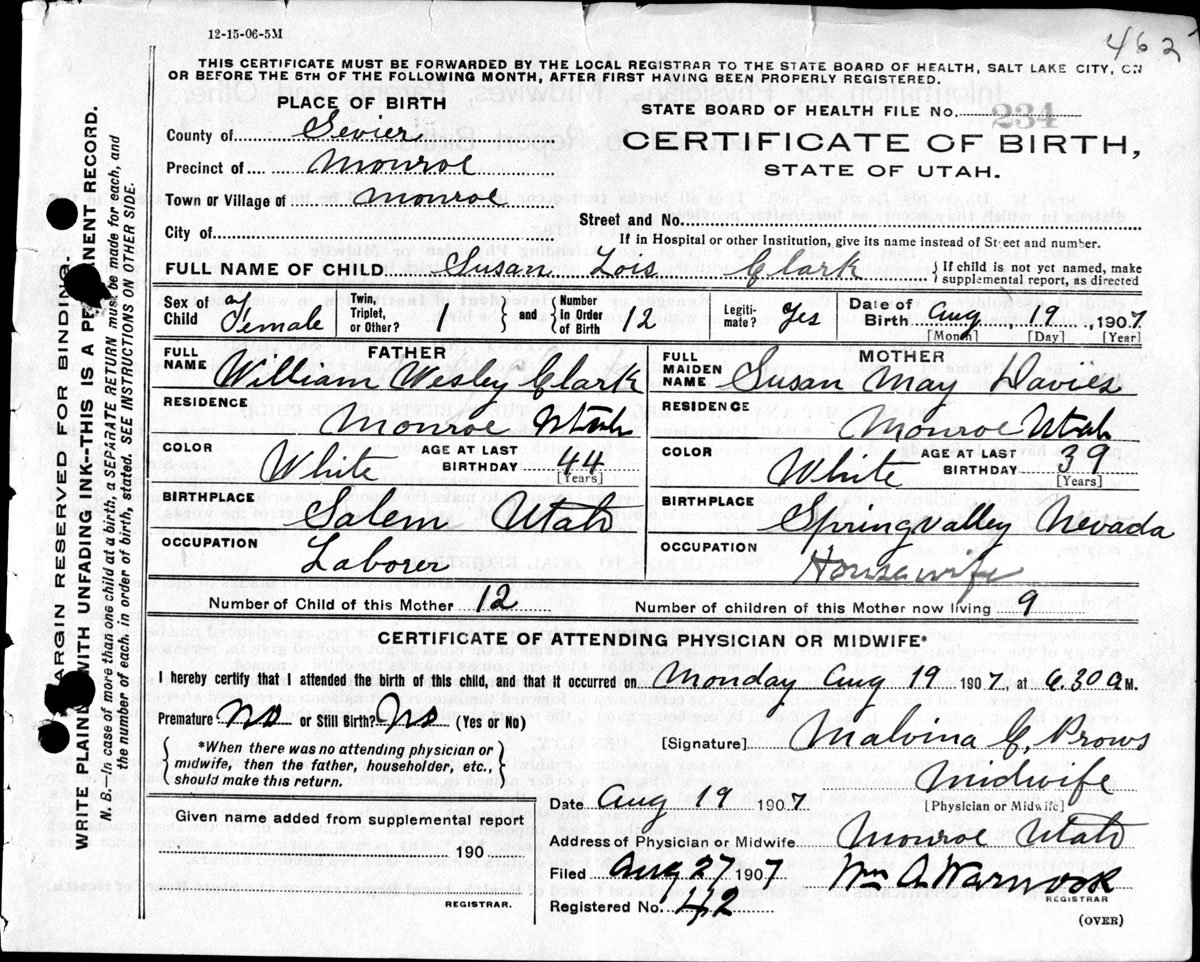 12-15-06-5M
462
THIS CERTIFICATE MUST BE FORWARDED BY THE LOCAL REGISTRAR TO THE STATE BOARD OF HEALTH, SALT LAKE CITY, ON
OR BEFORE THE 5TH OF THE FOLLOWING MONTH, AFTER FIRST HAVING BEEN PROPERLY REGISTERED.
PLACE OF BIRTH
STATE BOARD OF HEALTH FILE No. 234
County of Sevier
CERTIFICATE OF BIRTH,
Precinct of Monroe
STATE OF UTAH.
Town or Village of Monroe
Street and No.
City of
If in Hospital or other Institution, give its name instead of Street and number.
FULL NAME OF CHILD Susan Lois Clark } If child is not yet named, make supplemental report, as directed
Sex of Child Female Twin, Triplet, or Other? 1 } and { Number in Order of Birth 12 Legitimate? Yes Date of Birth Aug, 19, 1907
[Month] [Day] [Year]
FATHER
FULL NAME William Wesley Clark
RESIDENCE Monroe Utah
COLOR White AGE AT LAST BIRTHDAY 44
[Years]
BIRTHPLACE Salem Utah
OCCUPATION Laborer
MOTHER
FULL MAIDEN NAME Susan May Davies
RESIDENCE Monroe Utah
COLOR White AGE AT LAST BIRTHDAY 39
[Years]
BIRTHPLACE Springvalley Nevada
OCCUPATION Housewife
Number of Child of this Mother 12 Number of children of this Mother now living 9
CERTIFICATE OF ATTENDING PHYSICIAN OR MIDWIFE*
I hereby certify that I attended the birth of this child, and that it occurred on Monday Aug 19 1907, at 6.30 a M.
Premature No or Still Birth? No (Yes or No)
*When there was no attending physician or
midwife, then the father, householder, etc.,
should make this return.
[Signature] Malvina C. Prows
Midwife
[Physician or Midwife]
Date Aug 19 1907
Given name added from supplemental report
190
REGISTRAR.
Address of Physician or Midwife Monroe Utah
Filed Aug 27 1907 Wm A Warnock
REGISTRAR
Registered No. 42
(OVER)
MARGIN RESERVED FOR BINDING.
WRITE PLAINLY WITH UNFADING INK--THIS IS A PERMANENT RECORD.
N. B.—In case of more than one child at a birth, a SEPARATE RETURN must be made for each, and
the number of each, in order of birth, stated. SEE INSTRUCTIONS ON OTHER SIDE.